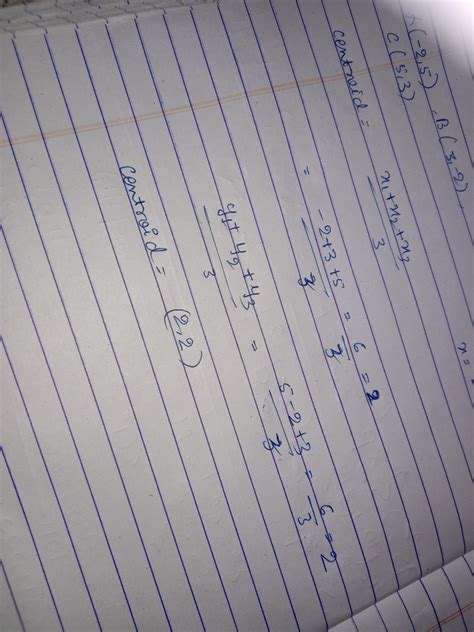 A(-2,5) B(3,-2)
C(5,3)
centroid = x₁+x₂+x₃/3
= -2+3+5/3 = 6/3 = 2
y₁+y₂+y₃/3 = 5-2+3/3 = 6/3 = 2
centroid = (2,2)
x =